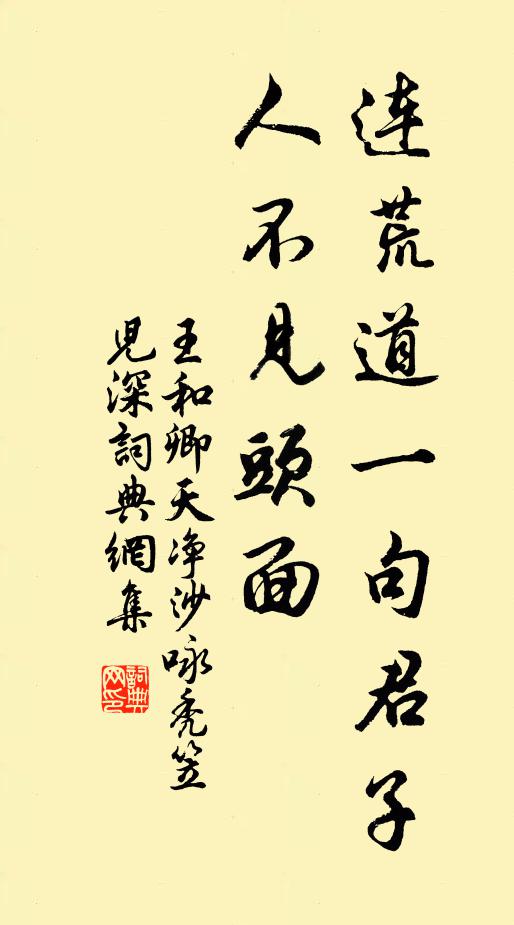 連荒道一句君子
人不見頭面
王和卿天净沙咏秃笠
兒深詞典網集
詞典网印